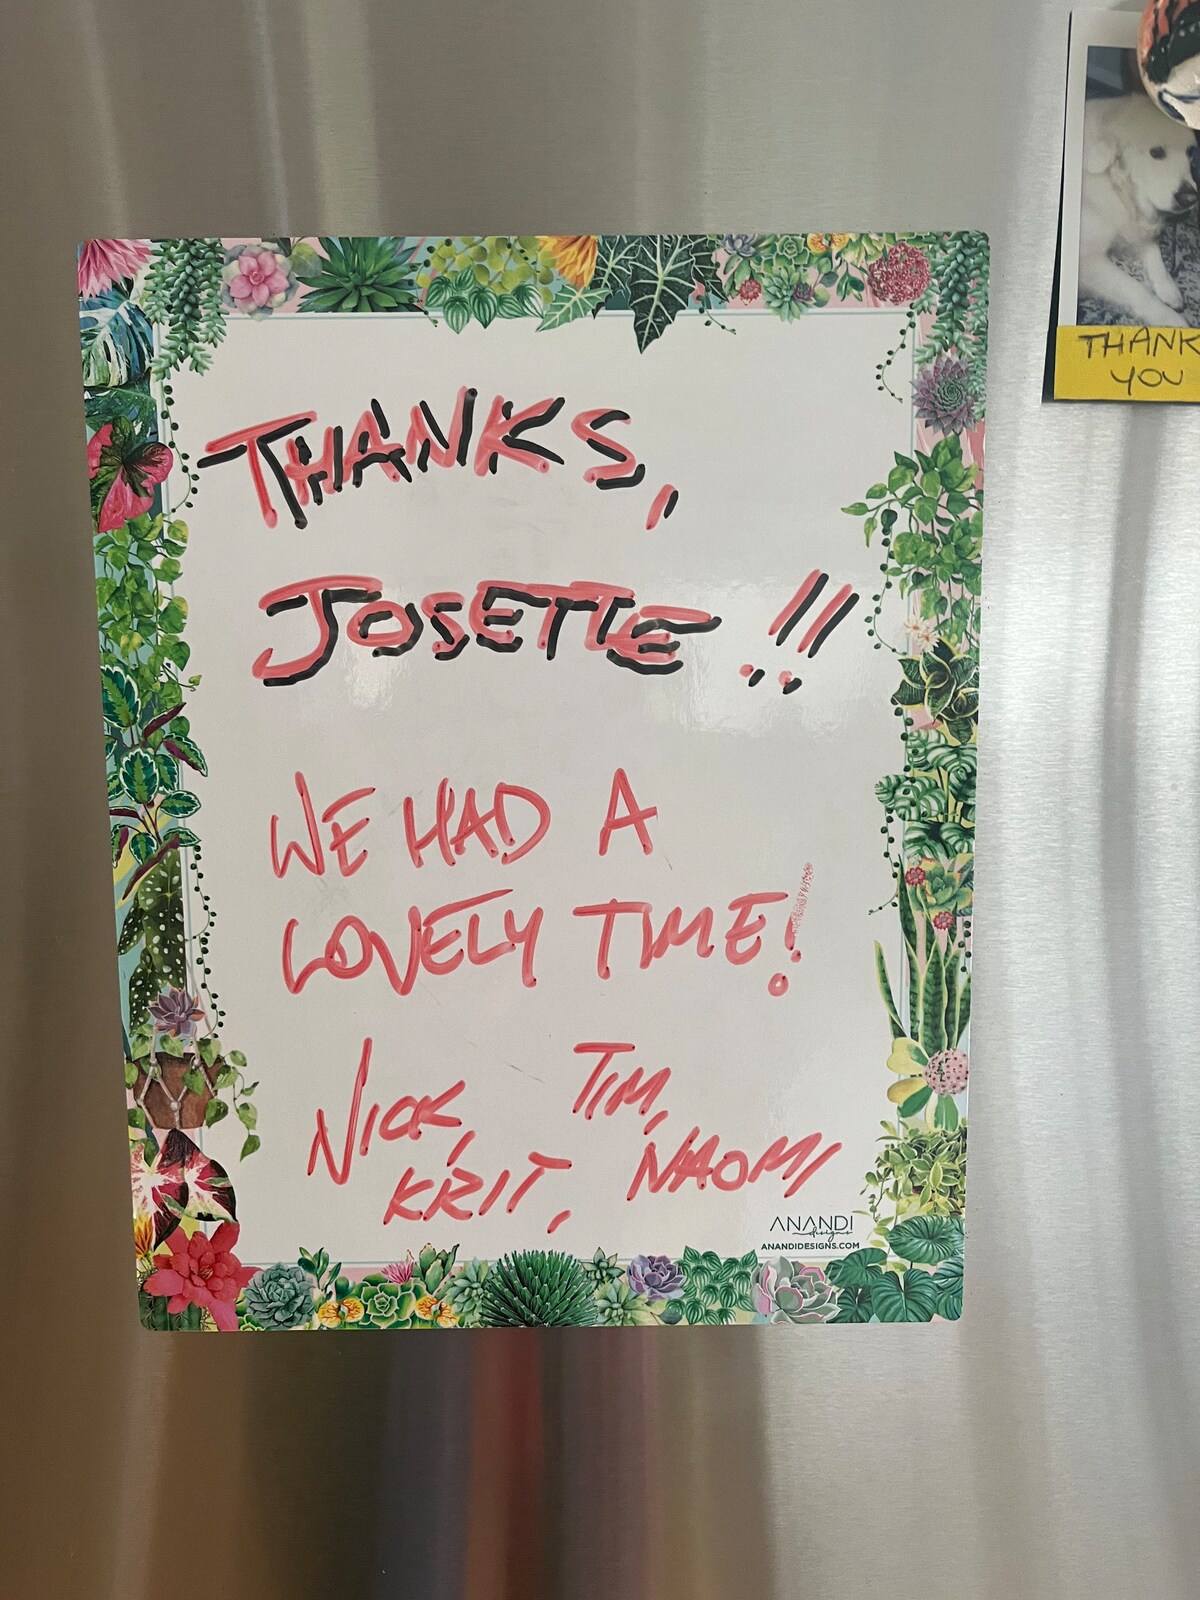 THANKS,
JOSETTE!!
WE HAD A
LOVELY TIME!
NICK, TIM,
KRIT, NAOMI
ANANDI
designs
ANANDIDESIGNS.COM
THANK
YOU